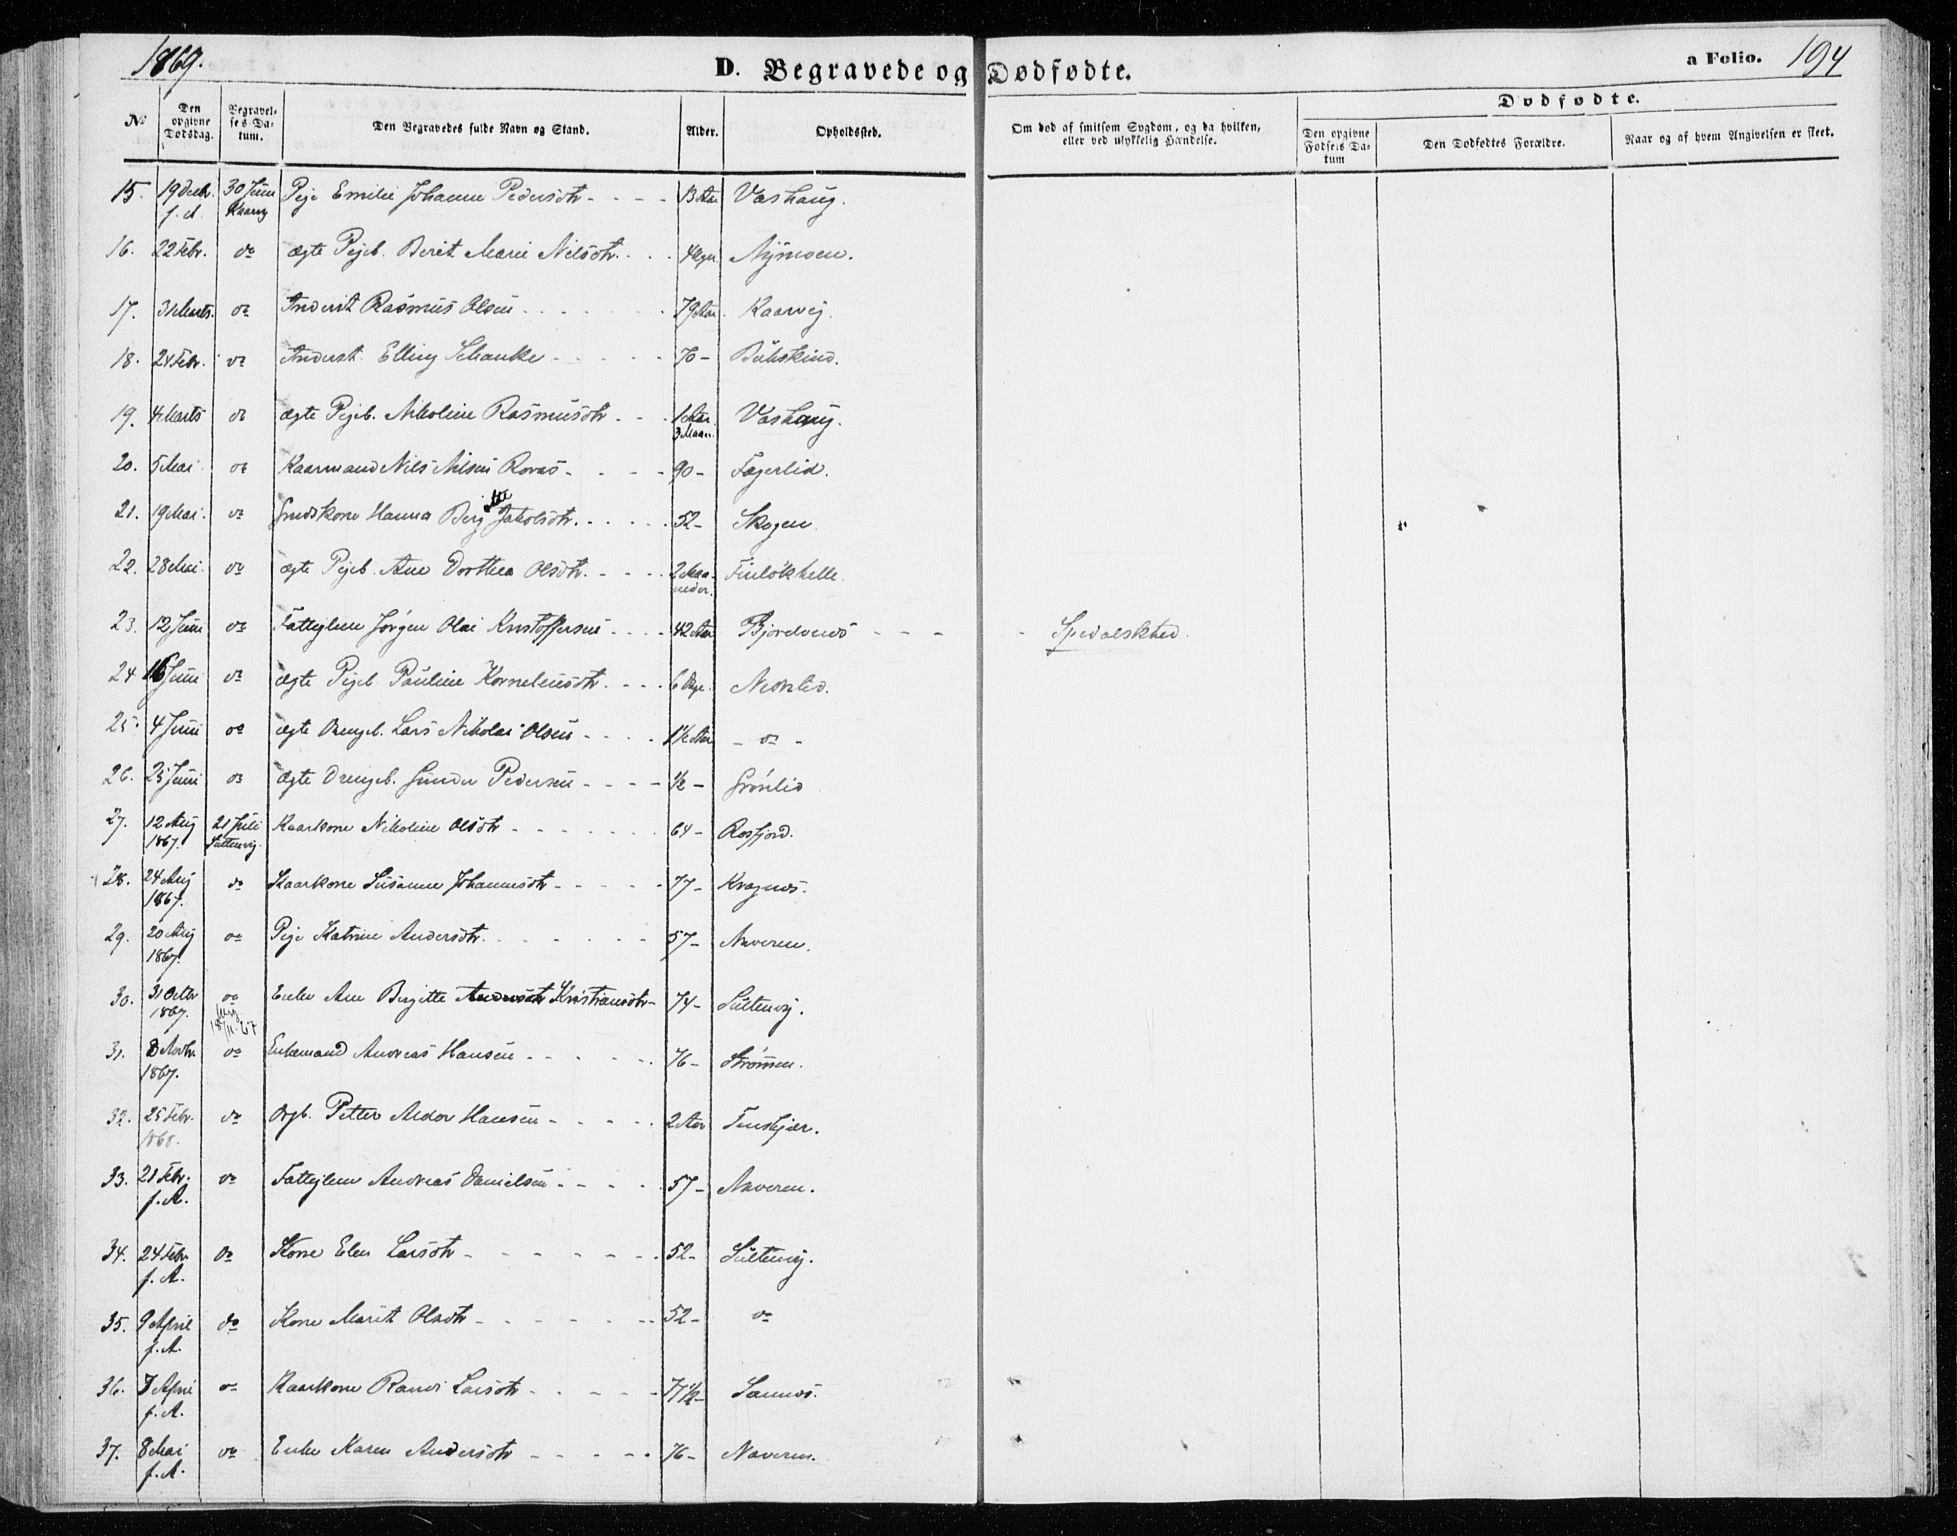 1869. D. Begravede og Dødfødte. a Folio. 194
Dødfødte.
No Den opgivne Dødsdag. Begravelses Datum. Den Begravedes fulde Navn og Stand. Alder. Opholdssted. Om død af smitsom Sygdom, og da hvilken, eller ved ulykkelig Hændelse. Den opgivne Fødsels Datum Den Dødfødtes Forældre. Naar og af hvem Angivelsen er skeet.
15. 19 Decbr. f. A. 30 Juni Kaarvg Pige Emilie Johanne Pedersdtr - - - - 13 Aar Vashaug.
16. 22 Febr. do ægte Pigeb. Berit Marie Nilsdtr. Nÿmoen.
17. 31 Marts. do Inderst Rasmus Olsen 79 Aar. Kaarvig.
18. 24 Febr. do Inderst. Elling Schanke 70 -
19. 4 Marts do ægte Pigeb. Nikoline Rasmusdtr 1 Aar 3 Maan. Vashaug.
20. 5 Mai do Kaarmand Nils Nilsen Rovas - 90 - Fagerlid.
21. 19 Mai. do Grndskone Hanna Birgitte Jakobsdtr. 52 - Skogen
22. 28 Mai. do ægte Pigeb. Ane Dorthea Olsdtr. 2 Maaneder.
23. 12 Juni do Fattiglem Jørgen Olai Kristoffersen 42 Aar Bjorelvnes - - - Spedalskhed.
24 16 Juni do ægte Pigeb. Pauline Kornelinsdtr. 6 Dage.
25. 4 Juni do ægte Drengeb. Lars Nikolai Olsen 1½ Aar - do -
26. 25 Juni do ægte Drengeb. Gunder Pedersen ½ - Grønlid
27. 12 Aug 1867. 21 Juli Sultenvig. Kaarkone Nikoline Olsdtr 64 - Rosfjord.
28. 24 Aug 1867. do Kaarkone Susanne Johannesdtr 77 - Kragnæs.
29. 20 Aug 1867. do Pige Katrine Andersdtr. 57 - Naveren.
30. 31 Octbr 1867. do Enke Ane Birgitte Andersdtr Kristiansdtr - 74 - Sultenvig.
31. 8 Novbr. 1867. do Enkemand Andreas Hansen 76 - Strømmen.
32. 25 Febr. 1868. do Drgb. Petter Aldor Hansen 2 Aar Finskjær.
33. 21 Febr. f. A. do Fattiglem Andreas Danielsen 57 - Naveren.
34. 24 Febr. f. A. Do Kone Elen Larsdtr 52 - Sultenvig.
35. 9 April f. A. do Kone Marit Olsdtr 52 - do
36. 7 April f. A. do Kaarkone Randi Larsdtr 77½ - Sannes.
37. 8 Mai f. A. do Enke Karen Andersdtr 76 - Naveren.